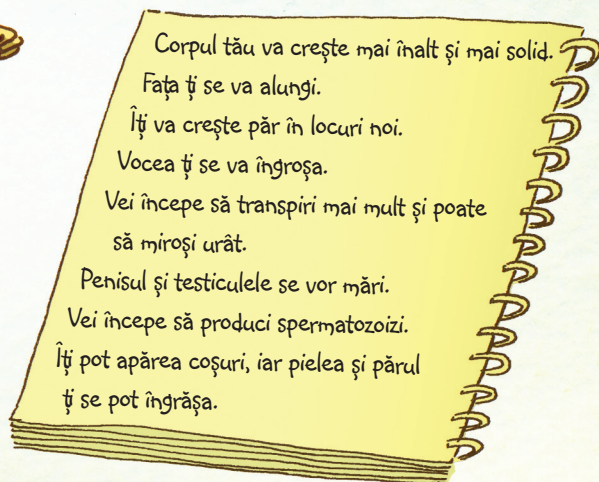 Corpul tău va crește mai înalt și mai solid.
Fața ți se va alungi.
Îți va crește păr în locuri noi.
Vocea ți se va îngroșa.
Vei începe să transpiri mai mult și poate
să miroși urât.
Penisul și testiculele se vor mări.
Vei începe să produci spermatozoizi.
Îți pot apărea coșuri, iar pielea și părul
ți se pot îngrășa.